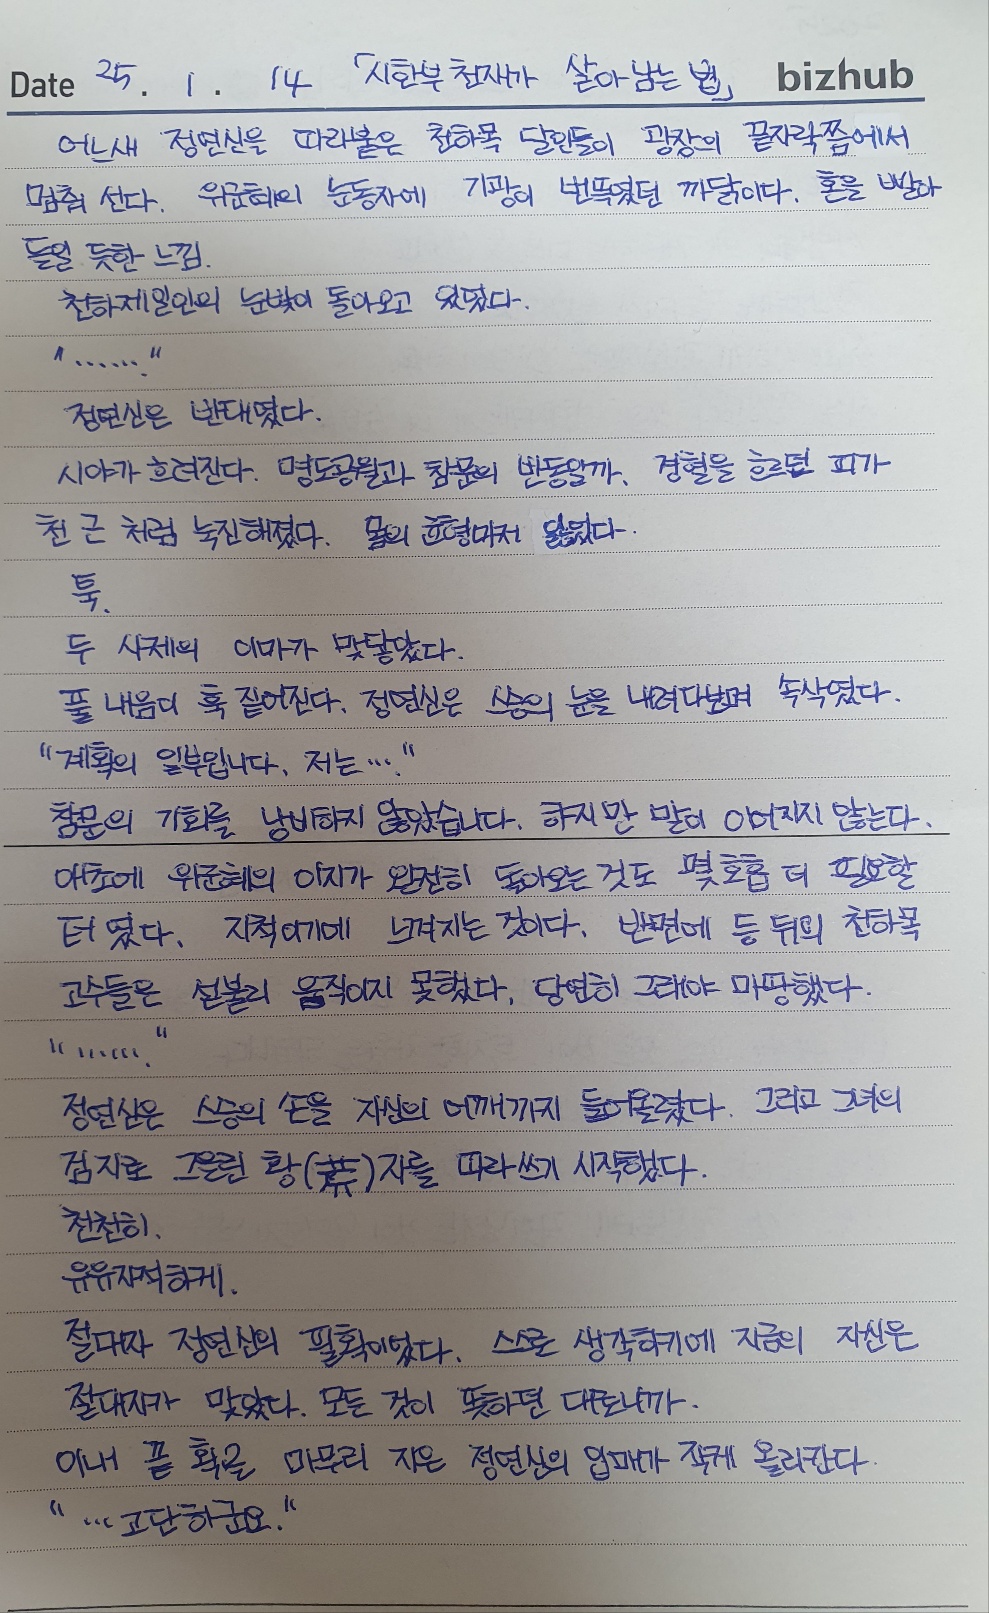 Date 25. 1. 14 「시한부 천재가 살아남는 법」 bizhub
어느새 정연신은 따라붙은 천하목 달인들이 광장의 끝자락쯤에서
멈춰 선다. 위군혜의 눈동자에 기광이 번뜩였던 까닭이다. 혼을 빨아
들일 듯한 느낌.
천하제일인의 눈빛이 돌아오고 있었다.
"……."
정연신은 반대였다.
시야가 흐려진다. 명도공월과 참문의 반동일까. 경혈을 흐르던 피가
천 근 처럼 눅진해졌다. 몸의 균형마저 잃었다.
툭.
두 사제의 이마가 맞닿았다.
풀 내음이 훅 짙어진다. 정연신은 스승의 눈을 내려다보며 속삭였다.
"계획의 일부입니다. 저는…."
참문의 기회를 낭비하지 않았습니다. 하지만 말이 이어지지 않는다.
애초에 위군혜의 이지가 완전히 돌아오는 것도 몇 호흡 더 필요할
터 였다. 지척이기에 느껴지는 것이다. 반면에 등 뒤의 천하목
고수들은 섣불리 움직이지 못했다. 당연히 그래야 마땅했다.
"……."
정연신은 스승의 손을 자신의 어깨까지 들어올렸다. 그리고 그녀의
검지로 그을린 황(黃)자를 따라쓰기 시작했다.
천천히.
유유자적하게.
절대자 정연신의 필획이었다. 스스로 생각하기에 지금의 자신은
절대자가 맞았다. 모든 것이 뜻하던 대로니까.
이내 끝 획을 마무리 지은 정연신의 입매가 작게 올라간다.
"…고단하군요."